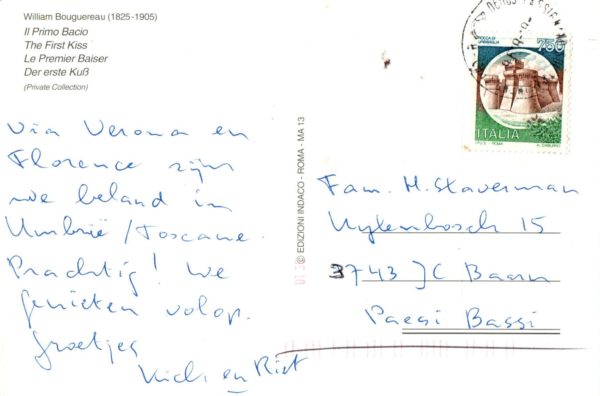 William Bouguereau (1825-1905)
Il Primo Bacio
The First Kiss
Le Premier Baiser
Der erste Kuß
(Private Collection)
Via Verona en
Florence zijn
we beland in
Umbrië/Toscane.
Prachtig! We
genieten volop.
Groetjes
en Riet
© EDIZIONI INDACO - ROMA - MA 13
ROCCA DI
URBISAGLIA
750
ITALIA
Fam. M. Staverman
Uytenbosch 15
3743 JC Baarn
Paesi Bassi